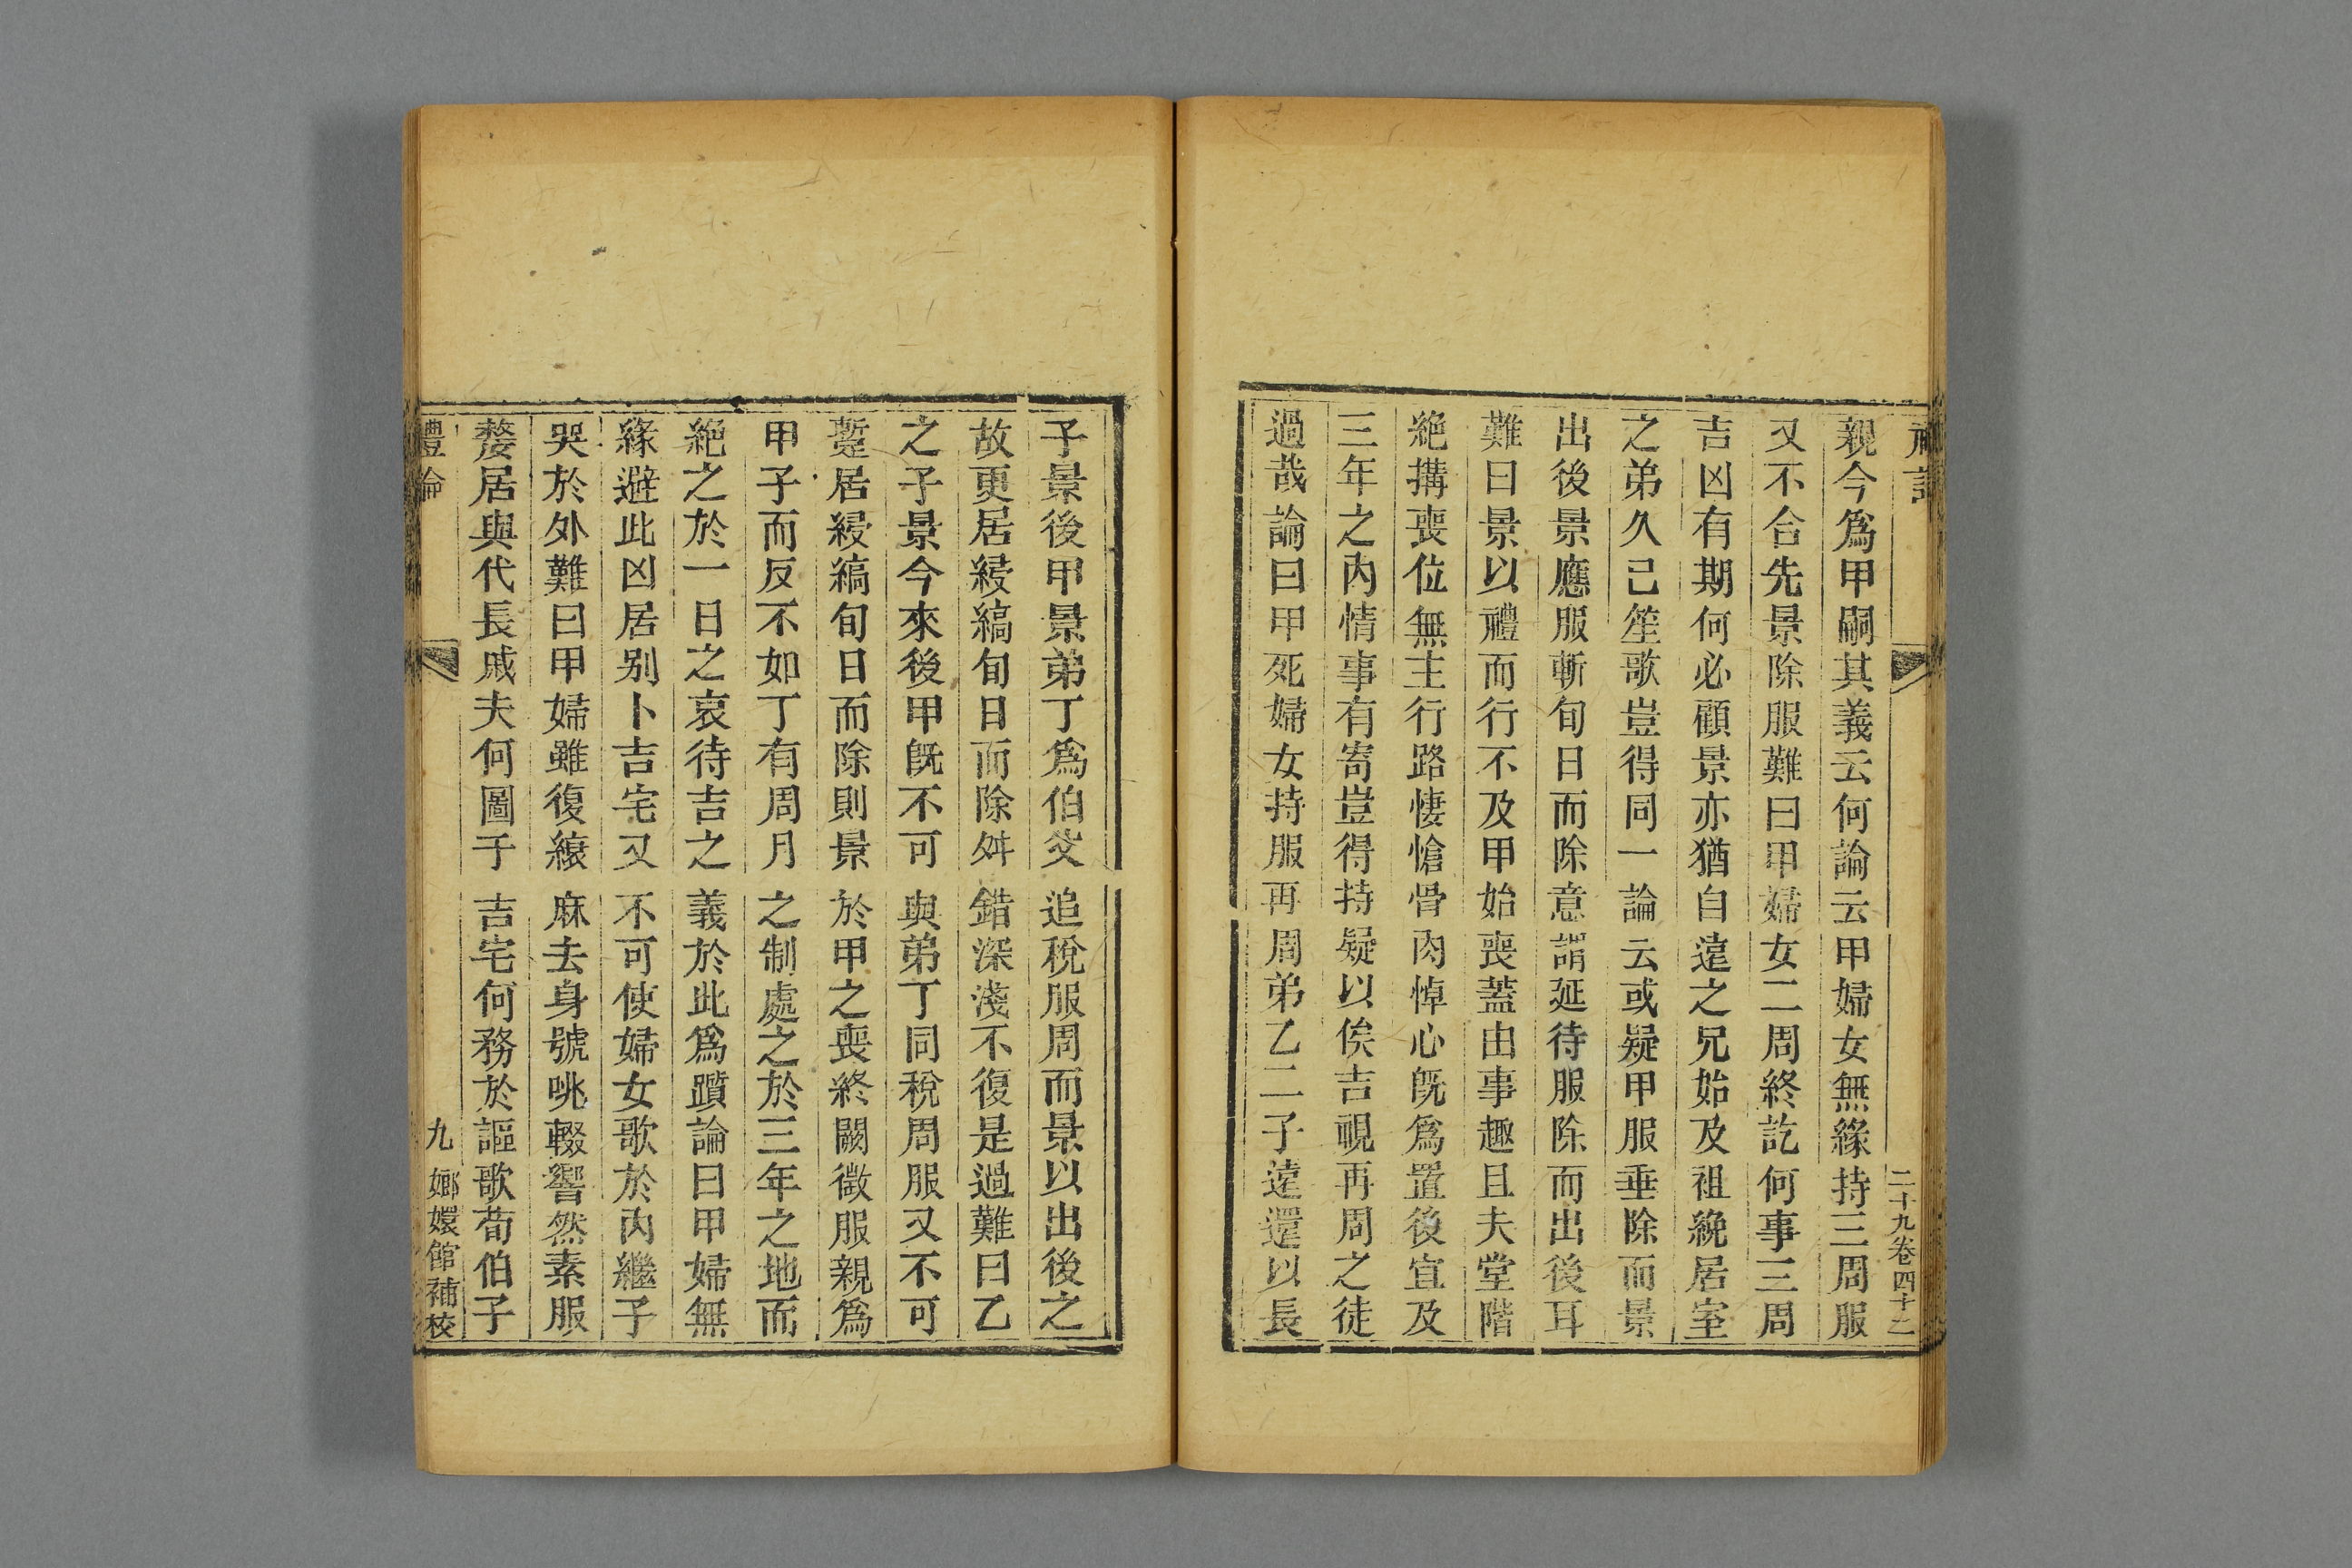 二十九卷四十二
親今爲甲嗣其義云何論云甲婦女無緣持三周服
又不合先景除服難曰甲婦女二周終訖何事三周
吉凶有期何必顧景亦猶自遠之兄始及祖絻居室
之弟久已笙歌豈得同一論云或疑甲服垂除而景
出後景應服斬旬日而除意謂延待服除而出後耳
難曰景以禮而行不及甲始喪蓋由事趣且夫堂階
絕搆喪位無主行路悽愴骨肉悼心旣爲置後宜及
三年之內情事有寄豈得持疑以俟吉覗再周之徒
過哉論曰甲死婦女持服再周弟乙二子遠還以長
子景後甲景弟丁爲伯父追稅服周而景以出後之
故更居縗縞旬日而除舛錯深淺不復是過難曰乙
之子景今來後甲旣不可與弟丁同稅周服又不可
蹔居縗縞旬日而除則景於甲之喪終闕徵服親爲
甲子而反不如丁有周月之制處之於三年之地而
絕之於一日之哀待吉之義於此爲躓論曰甲婦無
緣避此凶居别卜吉宅又不可使婦女歌於內繼子
哭於外難曰甲婦雖復縗麻去身號咷輟響然素服
嫠居與代長戚夫何圖子吉宅何務於謳歌荀伯子
禮論 九 嫏嬛館補校